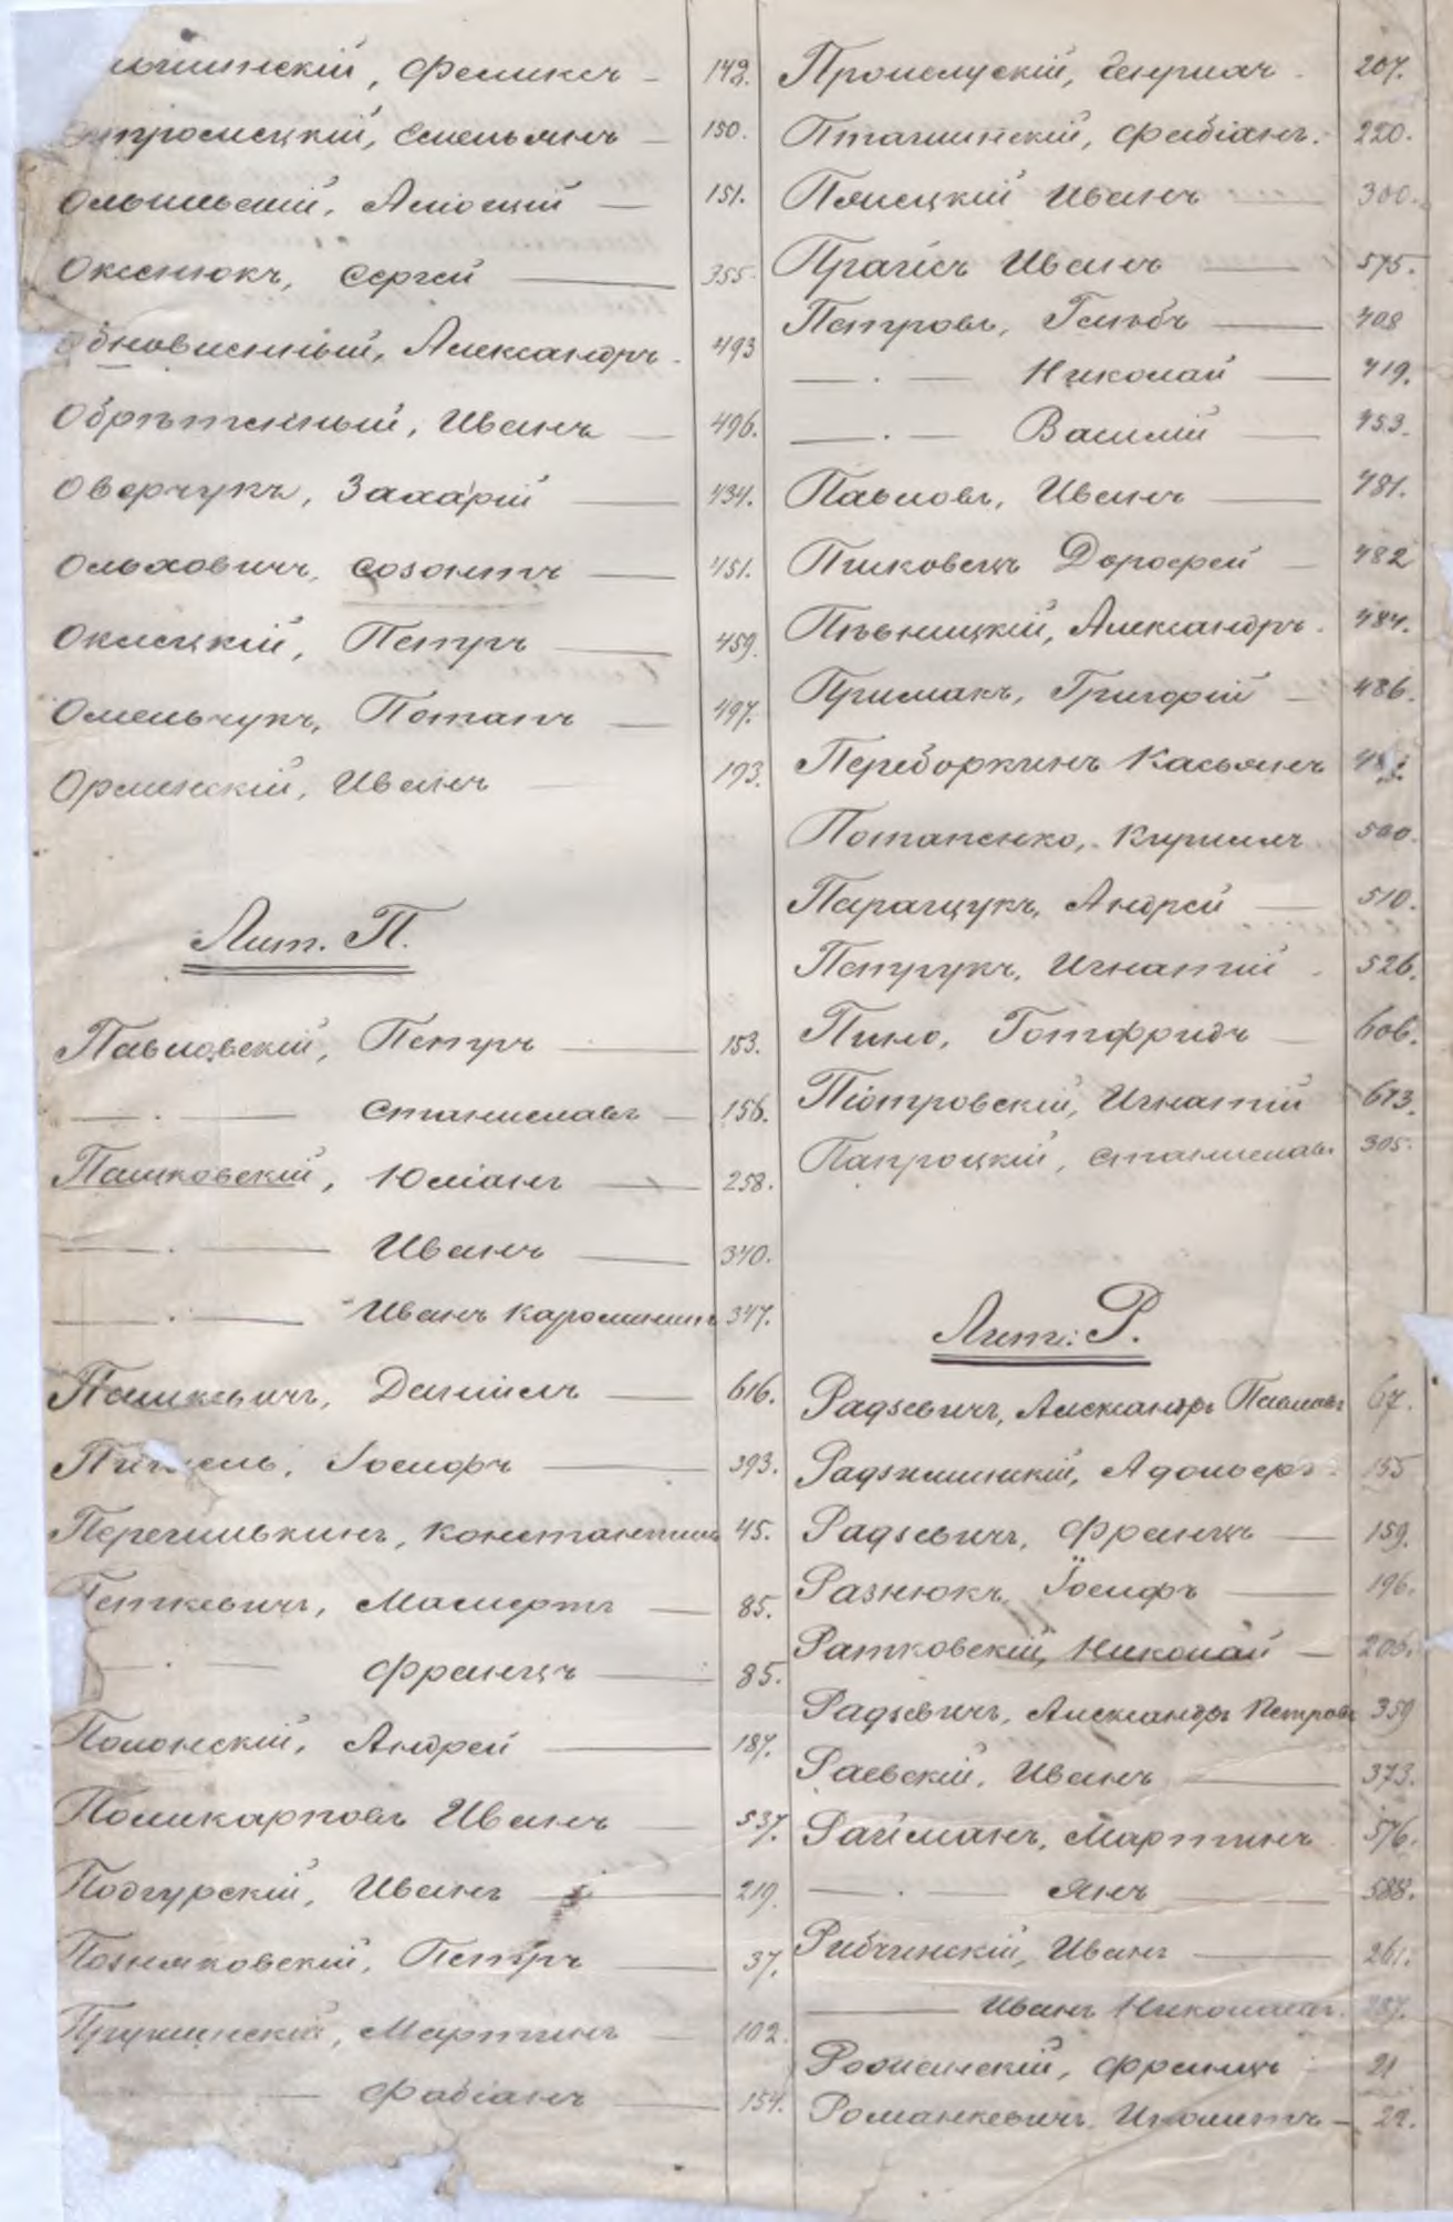 Феликсъ — 149.
Емельянъ — 150.
— 151.
Оксенюкъ, Сергей — 355.
Обновленный, Александръ — 493
Обрѣтенный, Иванъ — 496.
Оверчукъ, Захарій — 434.
Ольховичъ, Созонтъ — 451.
Окилцкій, Петръ — 459.
Омельчукъ, Потапъ — 497.
Орлинскій, Иванъ — 193.
Лит. П.
Павловскій, Петръ — 153.
— . — Станиславъ — 156.
Пашковскій, Юліанъ — 258.
— . — Иванъ — 340.
— . — Иванъ Каролинин 347.
Пашкевичъ, Даніилъ — 616.
Іосифъ — 393.
Перегилькинъ, Константинъ 45.
Петкевичъ, — 85.
— . — Францъ — 85.
Полонскій, Андрей — 187.
Поликарповъ Иванъ — 537.
Подгурскій, Иванъ — 219.
Позняковскій, Петръ — 37.
Прушинскій, Мартинъ — 102.
— Фабіанъ — 154.
Генрихъ — 207.
Пташинскій, Фабіанъ. 220.
Пясецкій Иванъ — 300.
Прагісъ Иванъ — 575.
Петровъ, Глѣбъ — 408
— . — Николай — 419.
— . — Василій — 453.
Павловъ, Иванъ — 481.
Пиковецъ Дорофей — 482
Пѣвницкій, Александръ. 484.
Примакъ, Григорій — 486.
Переборкинъ Касьянъ
Потапенко, Кириллъ 500.
Паращукъ, Андрей — 510.
Петрукъ, Игнатій . 526.
Пило, Готфридъ — 606.
Піотровскій, Игнатій 613.
Папроцкій, Станиславъ 305.
Лит: Р.
Радзевичъ, Александръ Павловъ 67.
Радзишинскій, 155
Радзевичъ, Францъ — 159.
Разнюкъ, Іосифъ — 196.
Ратковскій, Николай — 206.
Радзевичъ, Александръ Петровъ 359
Раевскій, Иванъ — 373.
Райманъ, Мартинъ 576.
— . — Янъ — 588.
Рибчинскій, Иванъ — 261.
— Иванъ Николаевъ.
Францъ — 21
Романкевичъ, Ипполитъ — 22.